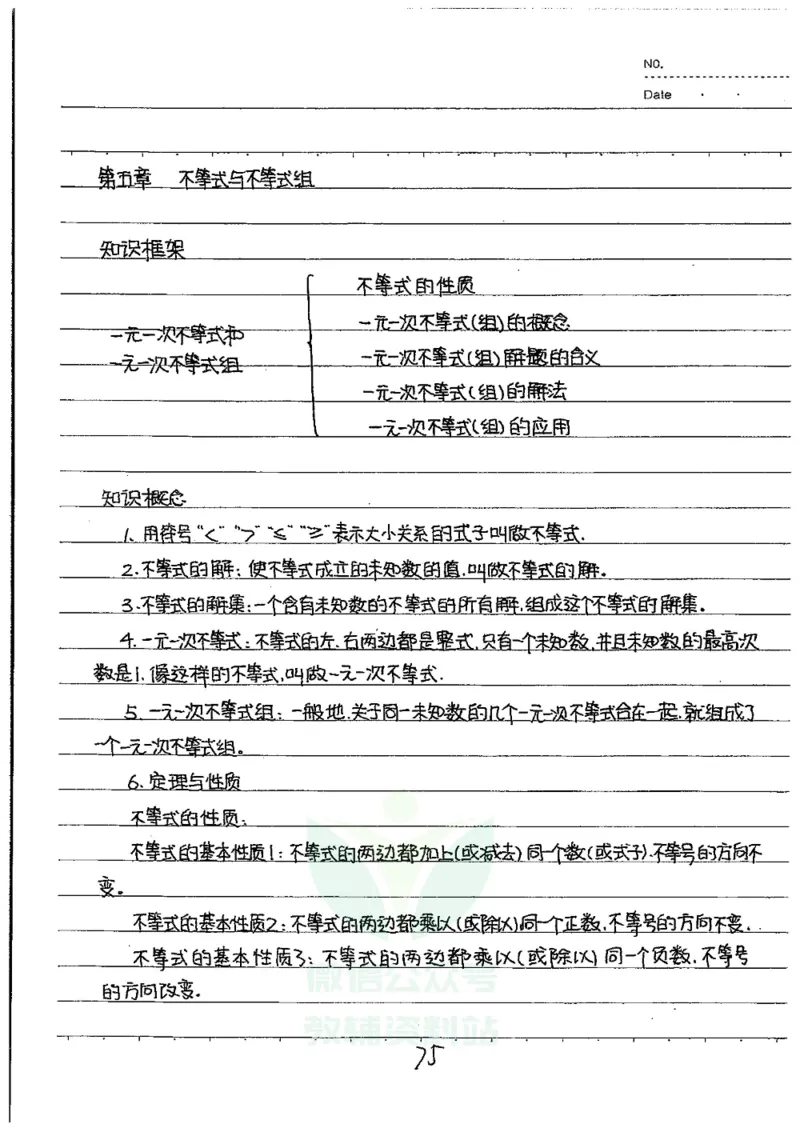 NO.
Date
第五章 不等式与不等式组
知识框架
不等式的性质
一元一次不等式(组)的概念
一元一次不等式和
一元一次不等式(组)解题的含义
一元一次不等式组
一元一次不等式(组)的解法
一元一次不等式(组)的应用
知识概念
1. 用符号“<”“>”“≤”“≥”表示大小关系的式子叫做不等式.
2.不等式的解:使不等式成立的未知数的值,叫做不等式的解.
3.不等式的解集:一个含有未知数的不等式的所有解,组成这个不等式的解集。
4.一元一次不等式:不等式的左、右两边都是整式,只有一个未知数,并且未知数的最高次
数是1.像这样的不等式,叫做一元一次不等式.
5.一元一次不等式组:一般地.关于同一未知数的几个一元一次不等式合在一起.就组成了
一个一元一次不等式组。
6.定理与性质
不等式的性质:
不等式的基本性质1:不等式的两边都加上(或减去)同一个数(或式子).不等号的方向不
变。
不等式的基本性质2:不等式的两边都乘以(或除以)同一个正数,不等号的方向不变.
不等式的基本性质3:不等式的两边都乘以(或除以)同一个负数,不等号
的方向改变.
微信公众号
教辅资料站
75